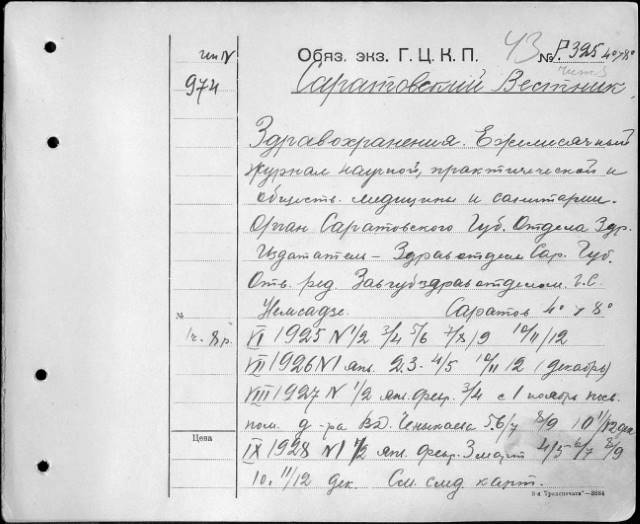 Обяз. экз. Г.Ц.К.П. 43 № Р395 4° у 8°
974
Саратовский Вестник
Здравохранения. Ежемесячный
журнал научной, практической и
обществ. медицины и санитарии.
Орган Саратовского Губ. Отдела Здр.
Издатател – Здравотдел Сар. Губ.
Отв. ред. Завгубздравотделом. Г.С.
Немсадзе. Саратов 4° у 8°
№
1г. 8р.
VI 1925 N 1/2 3/4 5/6 7/8/9 10/11/12
VII 1926 N 1 янв. 2.3. 4/5 10/11 12 (декабрь)
VIII 1927 N 1/2 янв. февр. 3/4 с 1 ноября посв.
пом. д-ра 5.6/7 8/9 10 11/12 дек.
Цена
IX 1928 N 1 2 янв. февр. 3 март 4/5 6/7 8/9
10. 11/12 дек. См. след. карт.